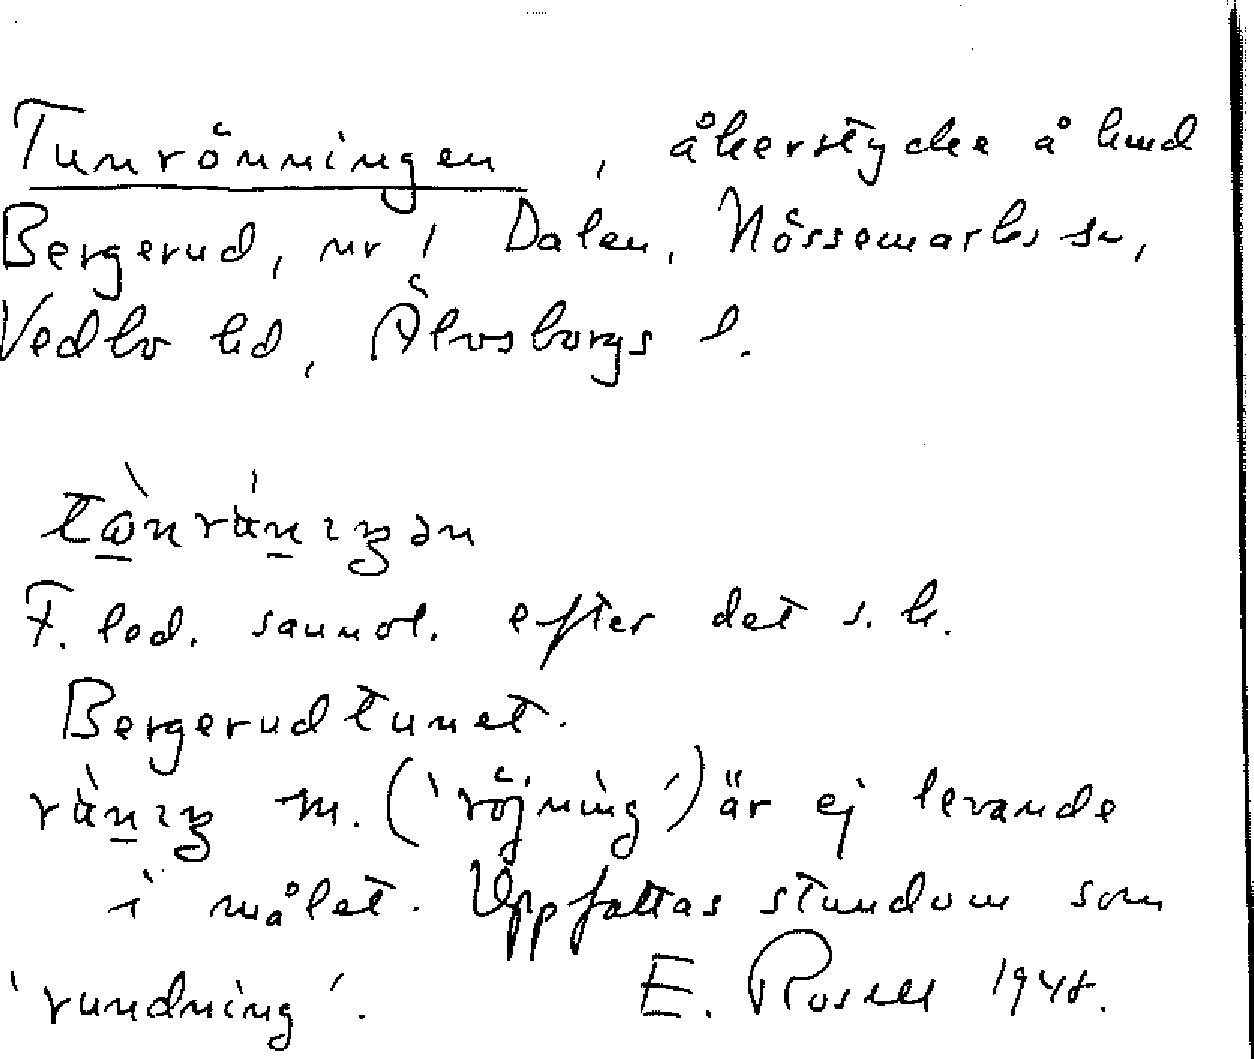 Tunrönningen, åkerstycke å hmd
Bergerud, nr 1 Dalen, Nössemarks sn,
Vedbo hd, Älvsborgs l.
F. led. sannol. efter det s. k.
Bergerudtunet.
m. ('röjning') är ej levande
i målet. Uppfattas stundom som
'rundning'. E. Rosell 1948.